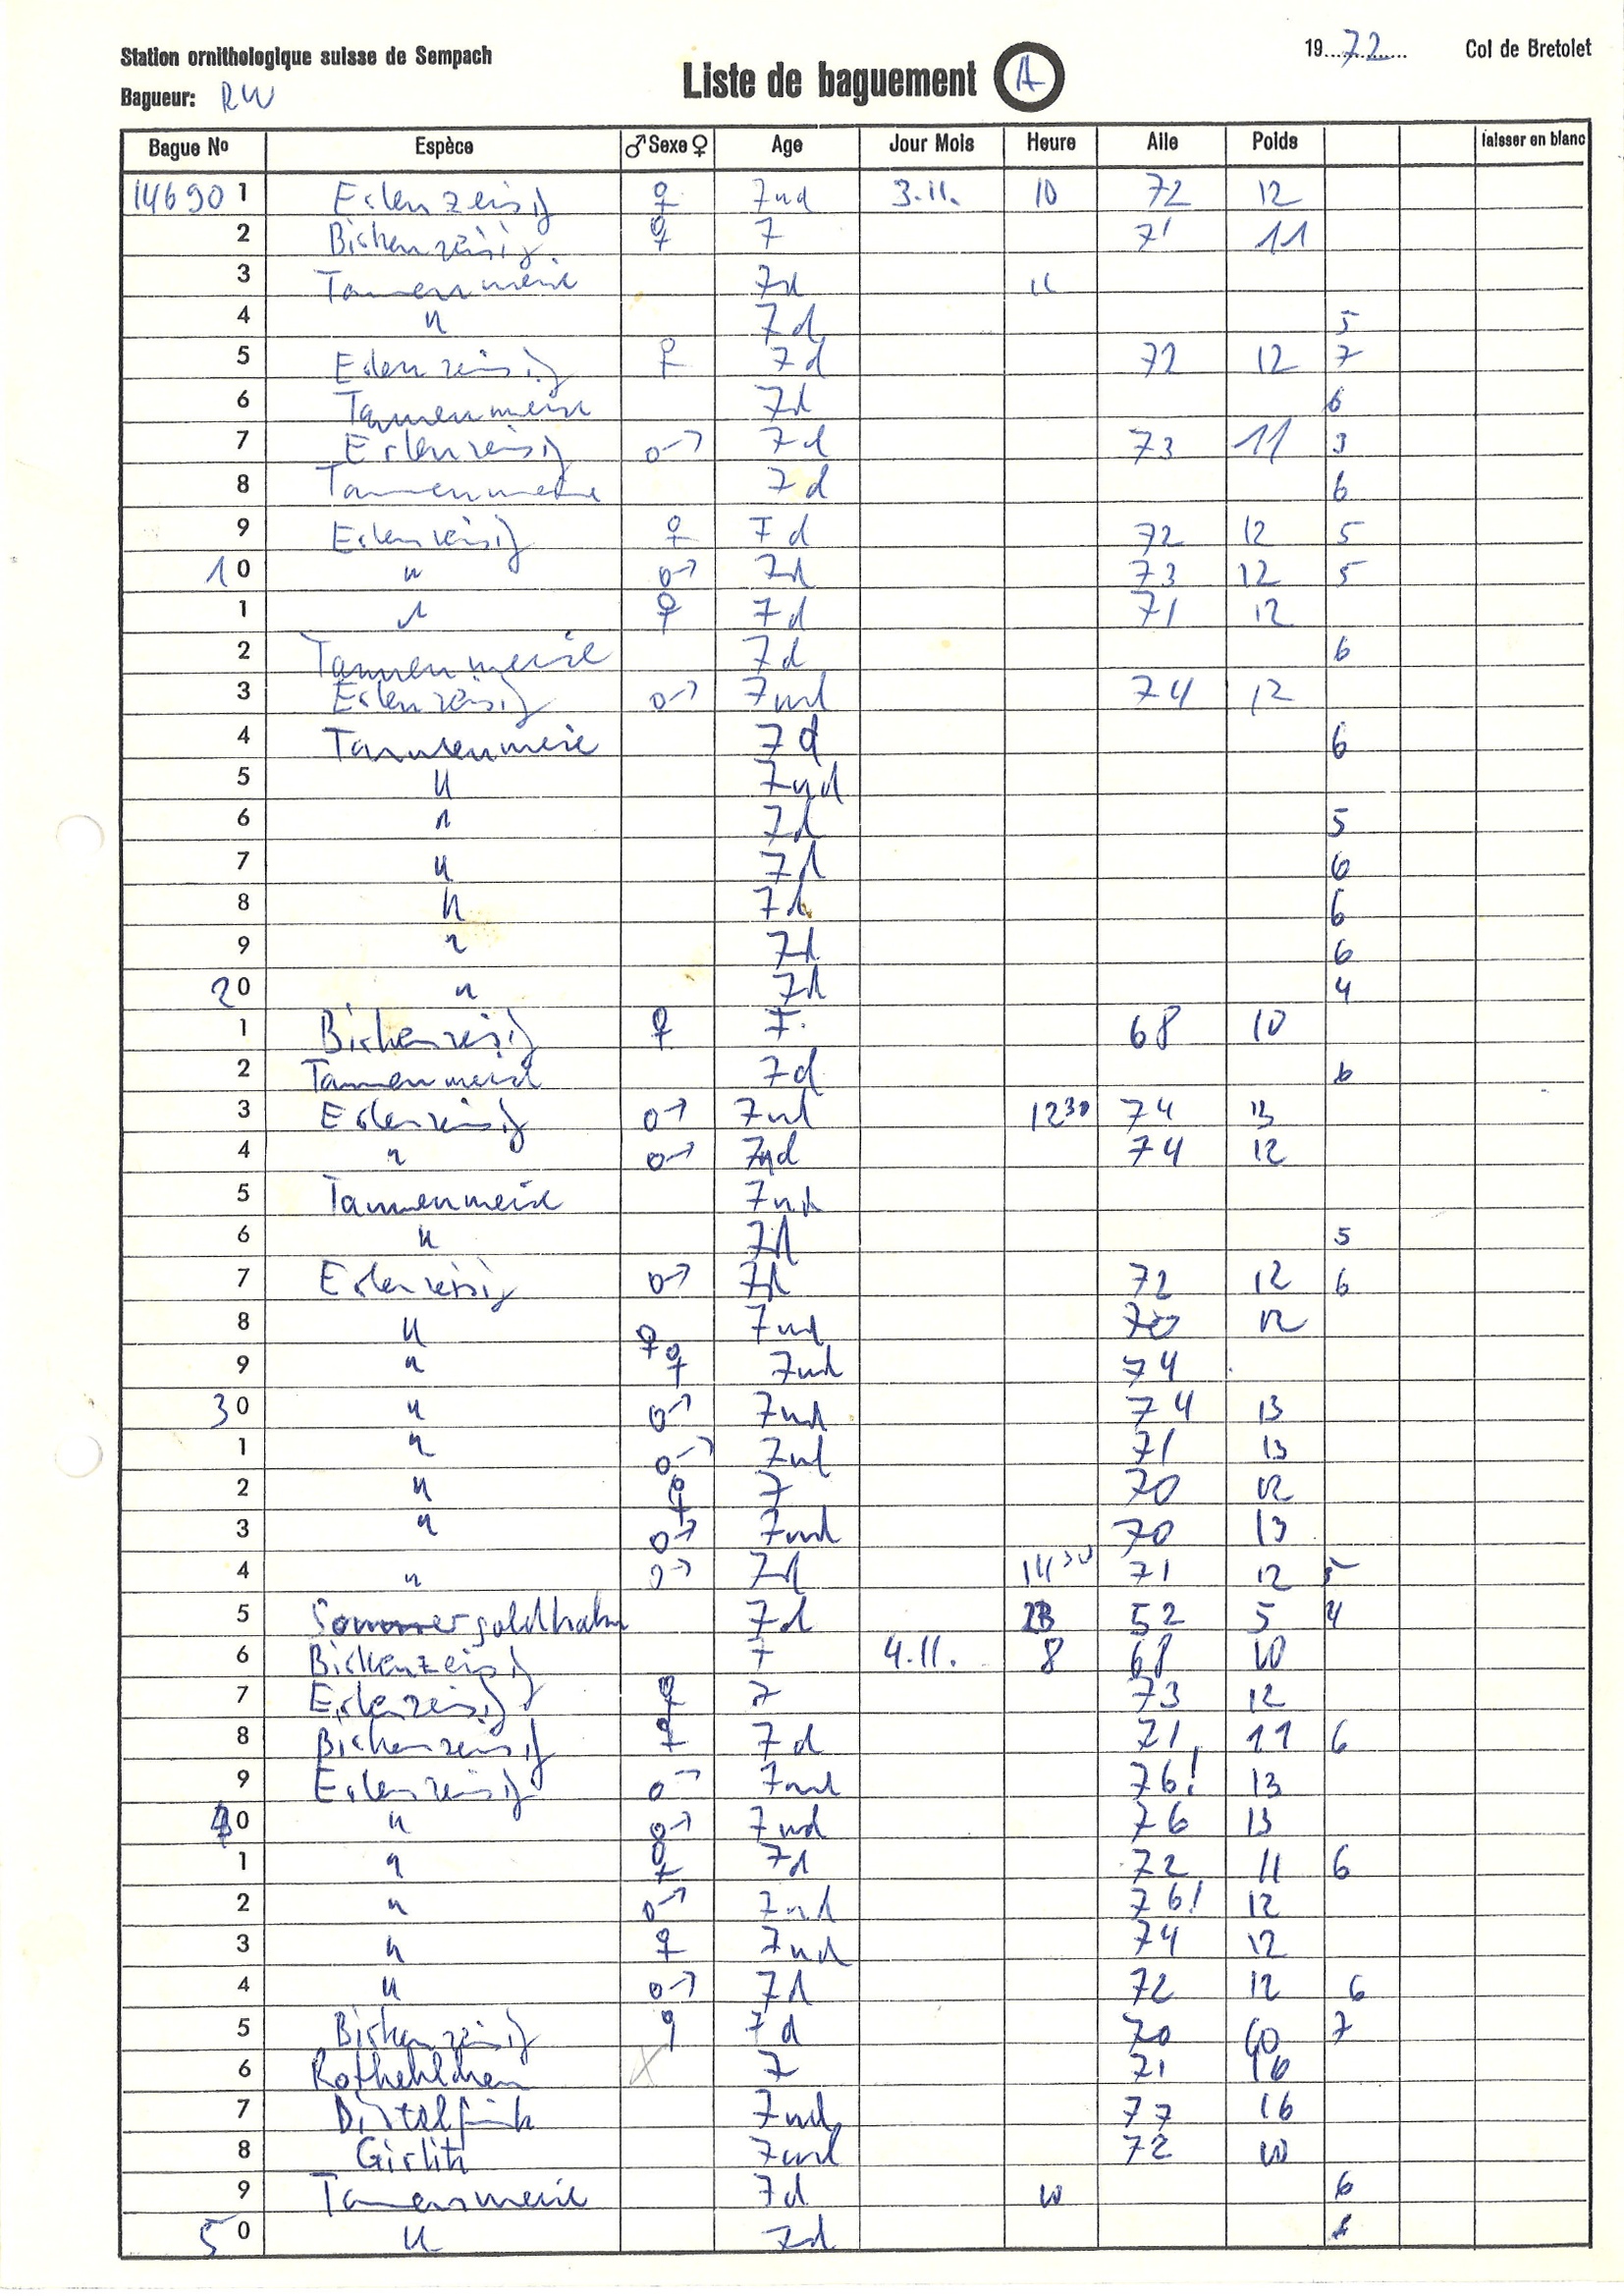 Station ornithologique suisse de Sempach
19 72 Col de Bretolet
Liste de baguement A
Bagueur: RW
Bague No Espèce ♂ Sexe ♀ Age Jour Mois Heure Aile Poids laisser en blanc
14690 1 Erlenzeisig ♀ 7nd 3.11. 10 72 12
2 Birkenzeisig ♀ 7 71 11
3 Tannenmeise 7d 11
4 " 7d 5
5 Erlenzeisig ♀ 7d 72 12 7
6 Tannenmeise 7d 6
7 Erlenzeisig ♂ 7d 73 11 3
8 Tannenmeise 7d 6
9 Erlenzeisig ♀ 7d 72 12 5
10 " ♂ 7d 73 12 5
1 " ♀ 7d 71 12
2 Tannenmeise 7d 6
3 Erlenzeisig ♂ 7nd 74 12
4 Tannenmeise 7d 6
5 " 7nd
6 " 7d 5
7 " 7d 6
8 " 7d 6
9 " 7d 6
20 " 7d 4
1 Birkenzeisig ♀ 7 68 10
2 Tannenmeise 7d 6
3 Erlenzeisig ♂ 7nd 12 30 74 13
4 " ♂ 7nd 74 12
5 Tannenmeise 7nd
6 " 7d 5
7 Erlenzeisig ♂ 7d 72 12 6
8 " ♀ 7nd 70 12
9 " ♀ 7nd 74
30 " ♂ 7nd 74 13
1 " ♂ 7nd 71 13
2 " ♀ 7 70 12
3 " ♂ 7nd 70 13
4 " ♂ 7d 14 30 71 12 5
5 Sommergoldhahn 7d 52 5 4
6 Birkenzeisig 7 4.11. 8 68 10
7 Erlenzeisig ♀ 7 73 12
8 Birkenzeisig ♀ 7d 71 11 6
9 Erlenzeisig ♂ 7nd 76! 13
40 " ♂ 7nd 76 13
1 " ♀ 7d 72 11 6
2 " ♂ 7nd 76! 12
3 " ♀ 7nd 74 12
4 " ♂ 7d 72 12 6
5 Birkenzeisig ♀ 7d 70 10 7
6 Rotkehlchen 7 71 16
7 Distelfink 7nd 77 16
8 Girlitz 7nd 72 10
9 Tannenmeise 7d 10 6
50 " 7d